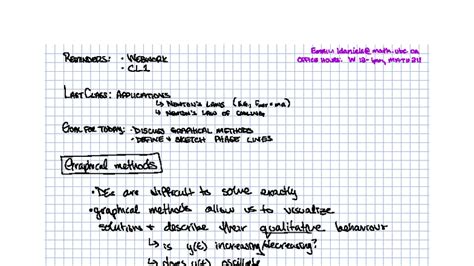 REMINDERS: • WEBWORK
• CL1
EMAIL: ldaniels@math.ubc.ca
OFFICE HOURS: W
LAST CLASS: APPLICATIONS
↳ NEWTON'S LAWS (e.g., Fnet = ma)
↳ NEWTON'S LAW OF COOLING
GOAL FOR TODAY: • DISCUSS GRAPHICAL METHODS
• DEFINE & SKETCH PHASE LINES
Graphical methods
• DEs are difficult to solve exactly
• graphical methods allow us to visualize
solutions & describe their qualitative behaviour
↳ is y(t) increasing/decreasing?
↳ does y(t) oscillate